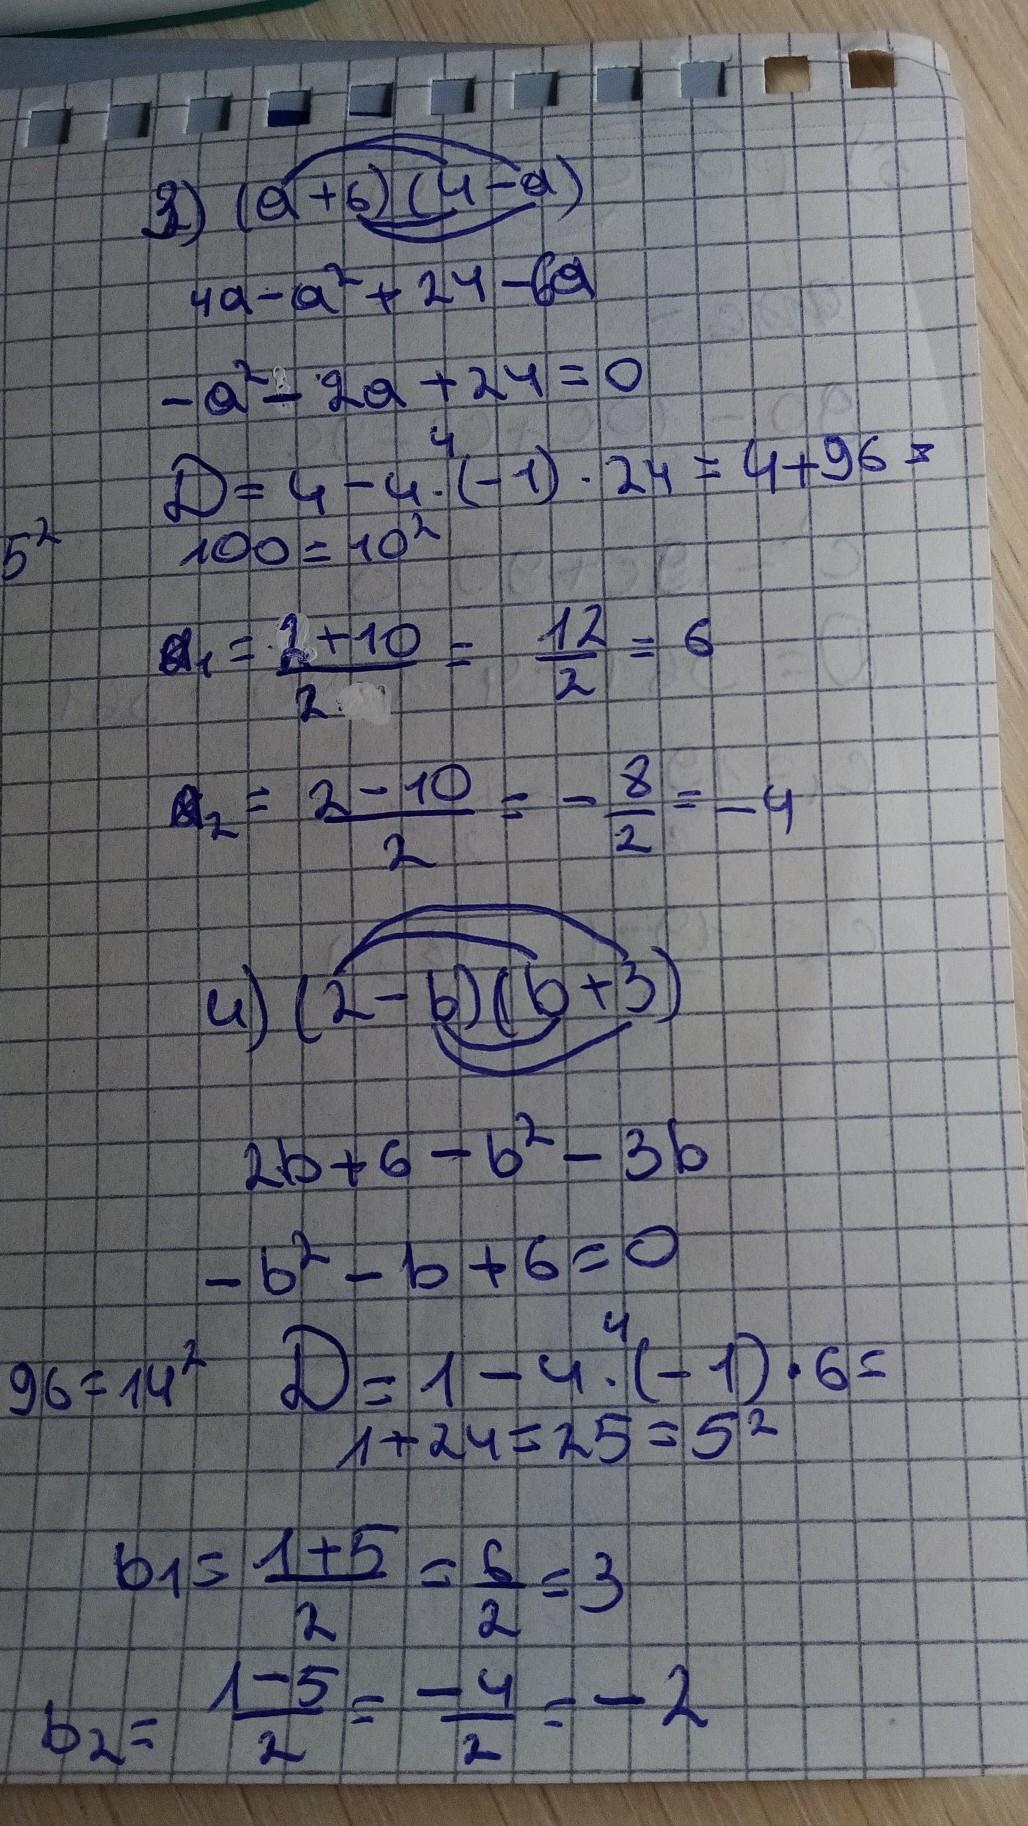 3) (a+6)(4-a)
4a-a²+24-6a
-a²-2a+24=0
D=4-4·(-1)·24=4+96=
4
5²
100=10²
a₁=2+10/2=12/2=6
a₂=2-10/2=-8/2=-4
4) (2-b)(b+3)
2b+6-b²-3b
-b²-b+6=0
4
96=14²
D=1-4·(-1)·6=
1+24=25=5²
b₁=1+5/2=6/2=3
b₂=1-5/2=-4/2=-2